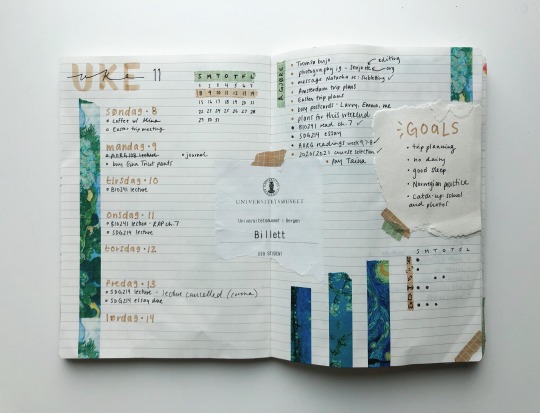 UKE
uke
11
S M T O T F L
1 2 3 4 5 6 7
8 9 10 11 12 13 14
15 16 17 18 19 20 21
22 23 24 25 26 27 28
29 30 31
søndag • 8
• Coffee w/
• Easter trip meeting
mandag • 9
• lecture
• journal
• buy Gina Tricot pants
tirsdag • 10
• BIO241 lecture
onsdag • 11
• BIO241 lecture - ch. 7
• SDG214 lecture
torsdag • 12
fredag • 13
• SDG214 lecture - lecture cancelled (corona)
• SDG214 essay due
lørdag • 14
UNIVERSITETSMUSEET
Universitetsmuseet i Bergen
Billett
UIB STUDENT
Å GJØRE
• Tromsø bujo
editing
• photography ig -
• message Natasha re: subletting
• Amsterdam trip plans
• Easter trip plans
• buy postcards - Emma, me
• plans for this weekend
• BIO241 read ch. 7
• SDG214 essay
• readings week 9, 7-8
• 2020/2021 course selection
• pay Taina
GOALS
• trip planning
• no dairy
• good sleep
• Norwegian practice
• Catch-up school
and photos
S M T O T F L